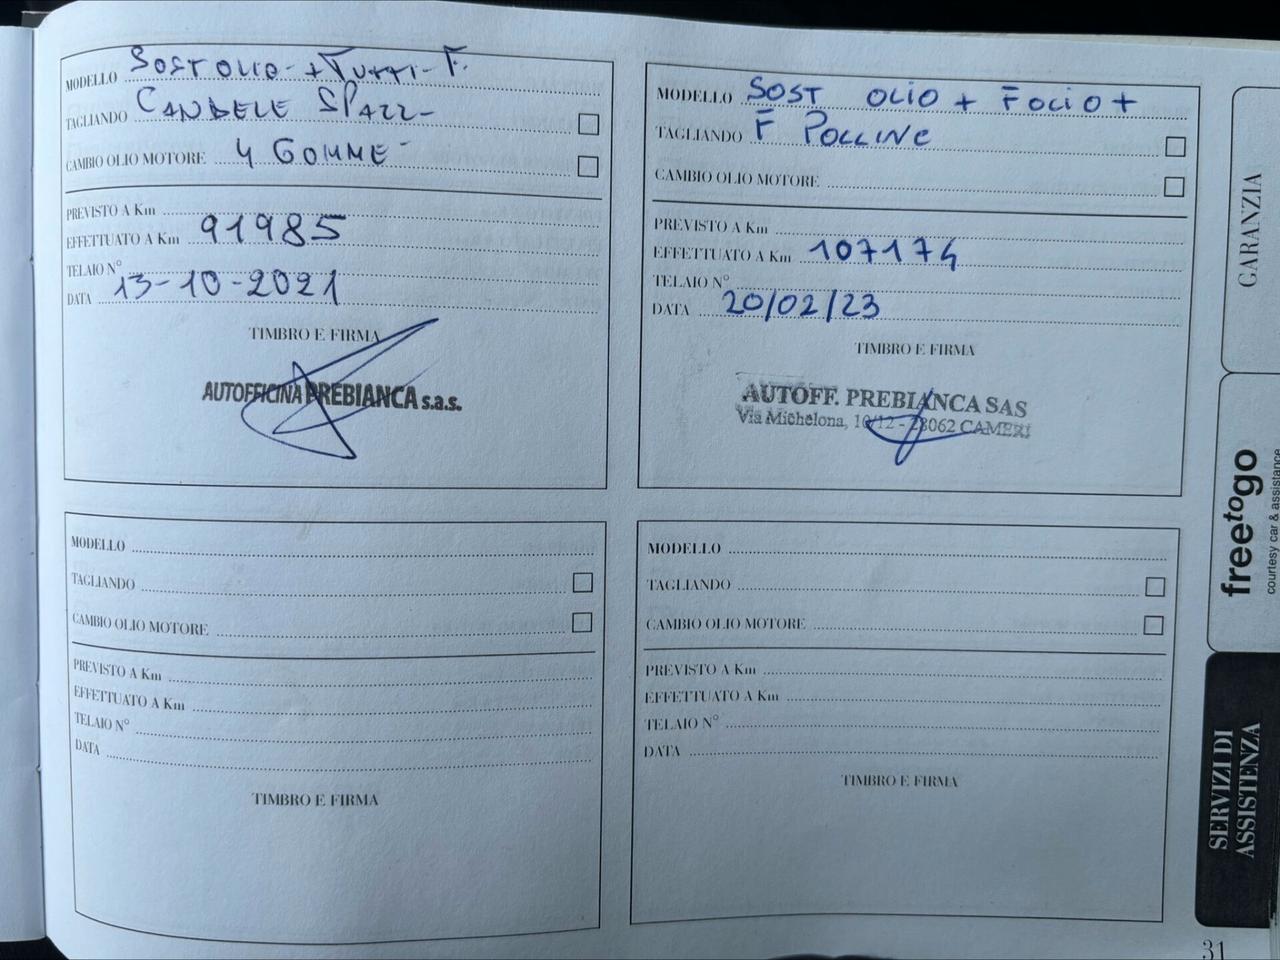 MODELLO SOST OLIO - + TUTTI - F.
TAGLIANDO CANDELE SPAZZ -
CAMBIO OLIO MOTORE 4 GOMME -
PREVISTO A Km
EFFETTUATO A Km 91985
TELAIO N°
DATA 13-10-2021
TIMBRO E FIRMA
AUTOFFICINA PREBIANCA s.a.s.
MODELLO SOST OLIO + FOLIO +
TAGLIANDO F POLLINE
CAMBIO OLIO MOTORE
PREVISTO A Km
EFFETTUATO A Km 107174
TELAIO N°
DATA 20/02/23
TIMBRO E FIRMA
AUTOFF. PREBIANCA SAS
Via Michelona, 10/12 - 28062 CAMERI
MODELLO
TAGLIANDO
CAMBIO OLIO MOTORE
PREVISTO A Km
EFFETTUATO A Km
TELAIO N°
DATA
TIMBRO E FIRMA
MODELLO
TAGLIANDO
CAMBIO OLIO MOTORE
PREVISTO A Km
EFFETTUATO A Km
TELAIO N°
DATA
TIMBRO E FIRMA
GARANZIA
freetogo
courtesy car & assistance
SERVIZI DI
ASSISTENZA
31